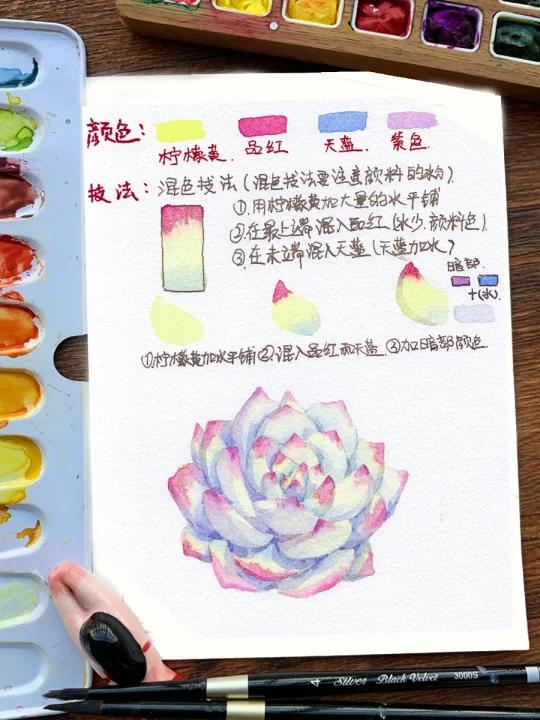 颜色:
柠檬黄. 品红 天蓝. 紫色.
技法: 混色技法(混色技法要注意颜料的水份).
①.用柠檬黄加大量的水平铺
②.在最上端混入品红(水少.颜料色).
③.在末端混入天蓝(天蓝加水)
暗部.
+(水).
①柠檬黄加水平铺 ②.混入品红和天蓝. ③加暗部颜色.
4 Silver Black Velvet 3000S